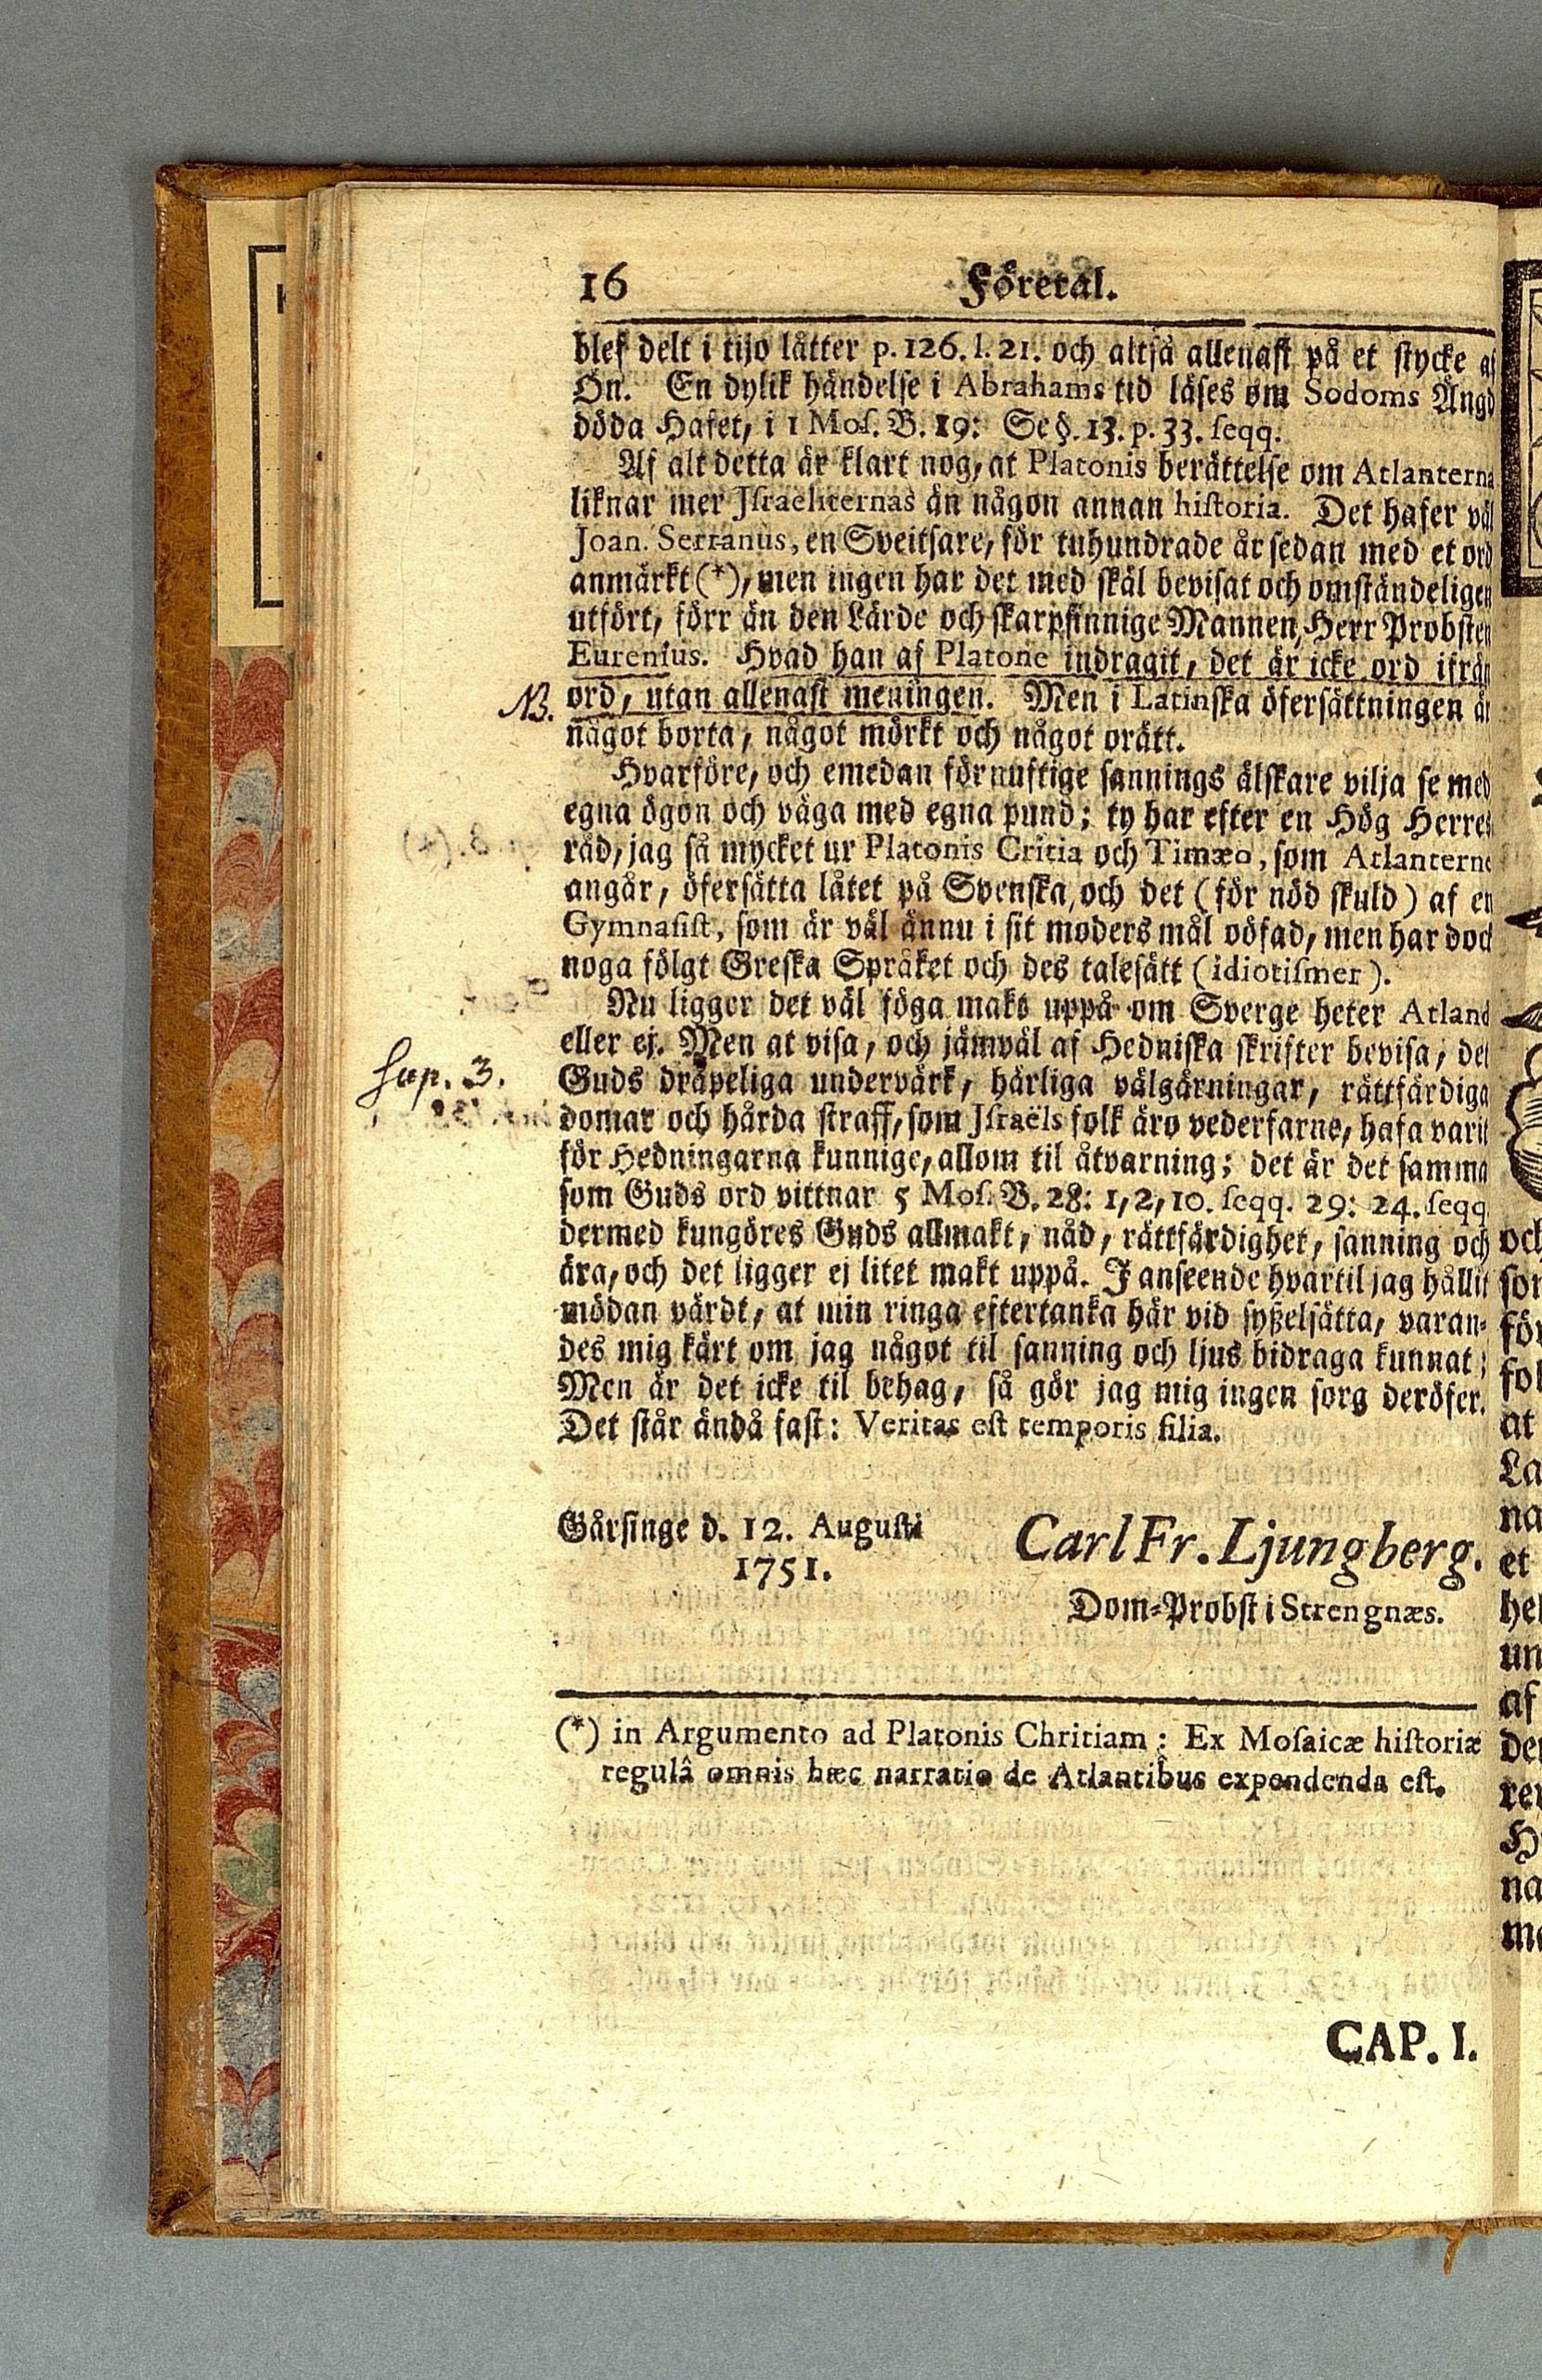 16 Företal.
blef delt i tijo låtter p. 126. l. 21. och altså allenast på et stycke af
Ön. En dylik händelse i Abrahams tid läses om Sodoms Ängd
döda Hafet, i 1 Mos. B. 19: Se §. 13. p. 33. seqq.
Af alt detta är klart nog, at Platonis berättelse om Atlanterna
liknar mer Jsraeliternas än någon annan historia. Det hafer väl
Joan. Serranus, en Sveitsare, för tuhundrade år sedan med et ord
anmärkt (*), men ingen har det med skäl bevisat och omständeligen
utfört, förr än den Lärde och skarpsinnige Mannen, Herr Probsten
Eurenius. Hvad han af Platone indragit, det är icke ord ifrån
NB. ord, utan allenast meningen. Men i Latinska öfersättningen är
något borta, något mörkt och något orätt.
Hvarföre, och emedan förnuftige sannings älskare vilja se med
egna ögon och väga med egna pund; ty har efter en Hög Herres
råd, jag så mycket ur Platonis Critia och Timæo, som Atlanterne
angår, öfersätta låtet på Svenska, och det (för nöd skuld) af en
Gymnasist, som är väl ännu i sit moders mål oöfad, men har dock
noga följt Greska Språket och des talesätt (idiotismer).
Nu ligger det väl föga makt uppå om Sverge heter Atland
eller ej. Men at visa, och jämväl af Hedniska skrifter bevisa, det
Sup. 3. Guds dråpeliga undervärk, härliga välgärningar, rättfärdiga
domar och hårda straff, som Jsraëls folk äro vederfarne, hafa varit
för Hedningarna kunnige, allom til åtvarning; det är det samma
som Guds ord vittnar 5 Mos. B. 28: 1, 2, 10. seqq. 29: 24. seqq
dermed kungöres Guds allmakt, nåd, rättfärdighet, sanning och
ära, och det ligger ej litet makt uppå. J anseende hvartil jag hållit
mödan värdt, at min ringa eftertanka här vid sysselsätta, varan-
des mig kärt om jag något til sanning och ljus bidraga kunnat;
Men är det icke til behag, så gör jag mig ingen sorg deröfer.
Det står ändå fast: Veritas est temporis filia.
Gårsinge d. 12. Augusti
1751.
Carl Fr. Ljungberg.
Dom-Probst i Strengnæs.
(*) in Argumento ad Platonis Chritiam: Ex Mosaicæ historiæ
regulâ omnis hæc narratio de Atlantibus expendenda est.
CAP. I.